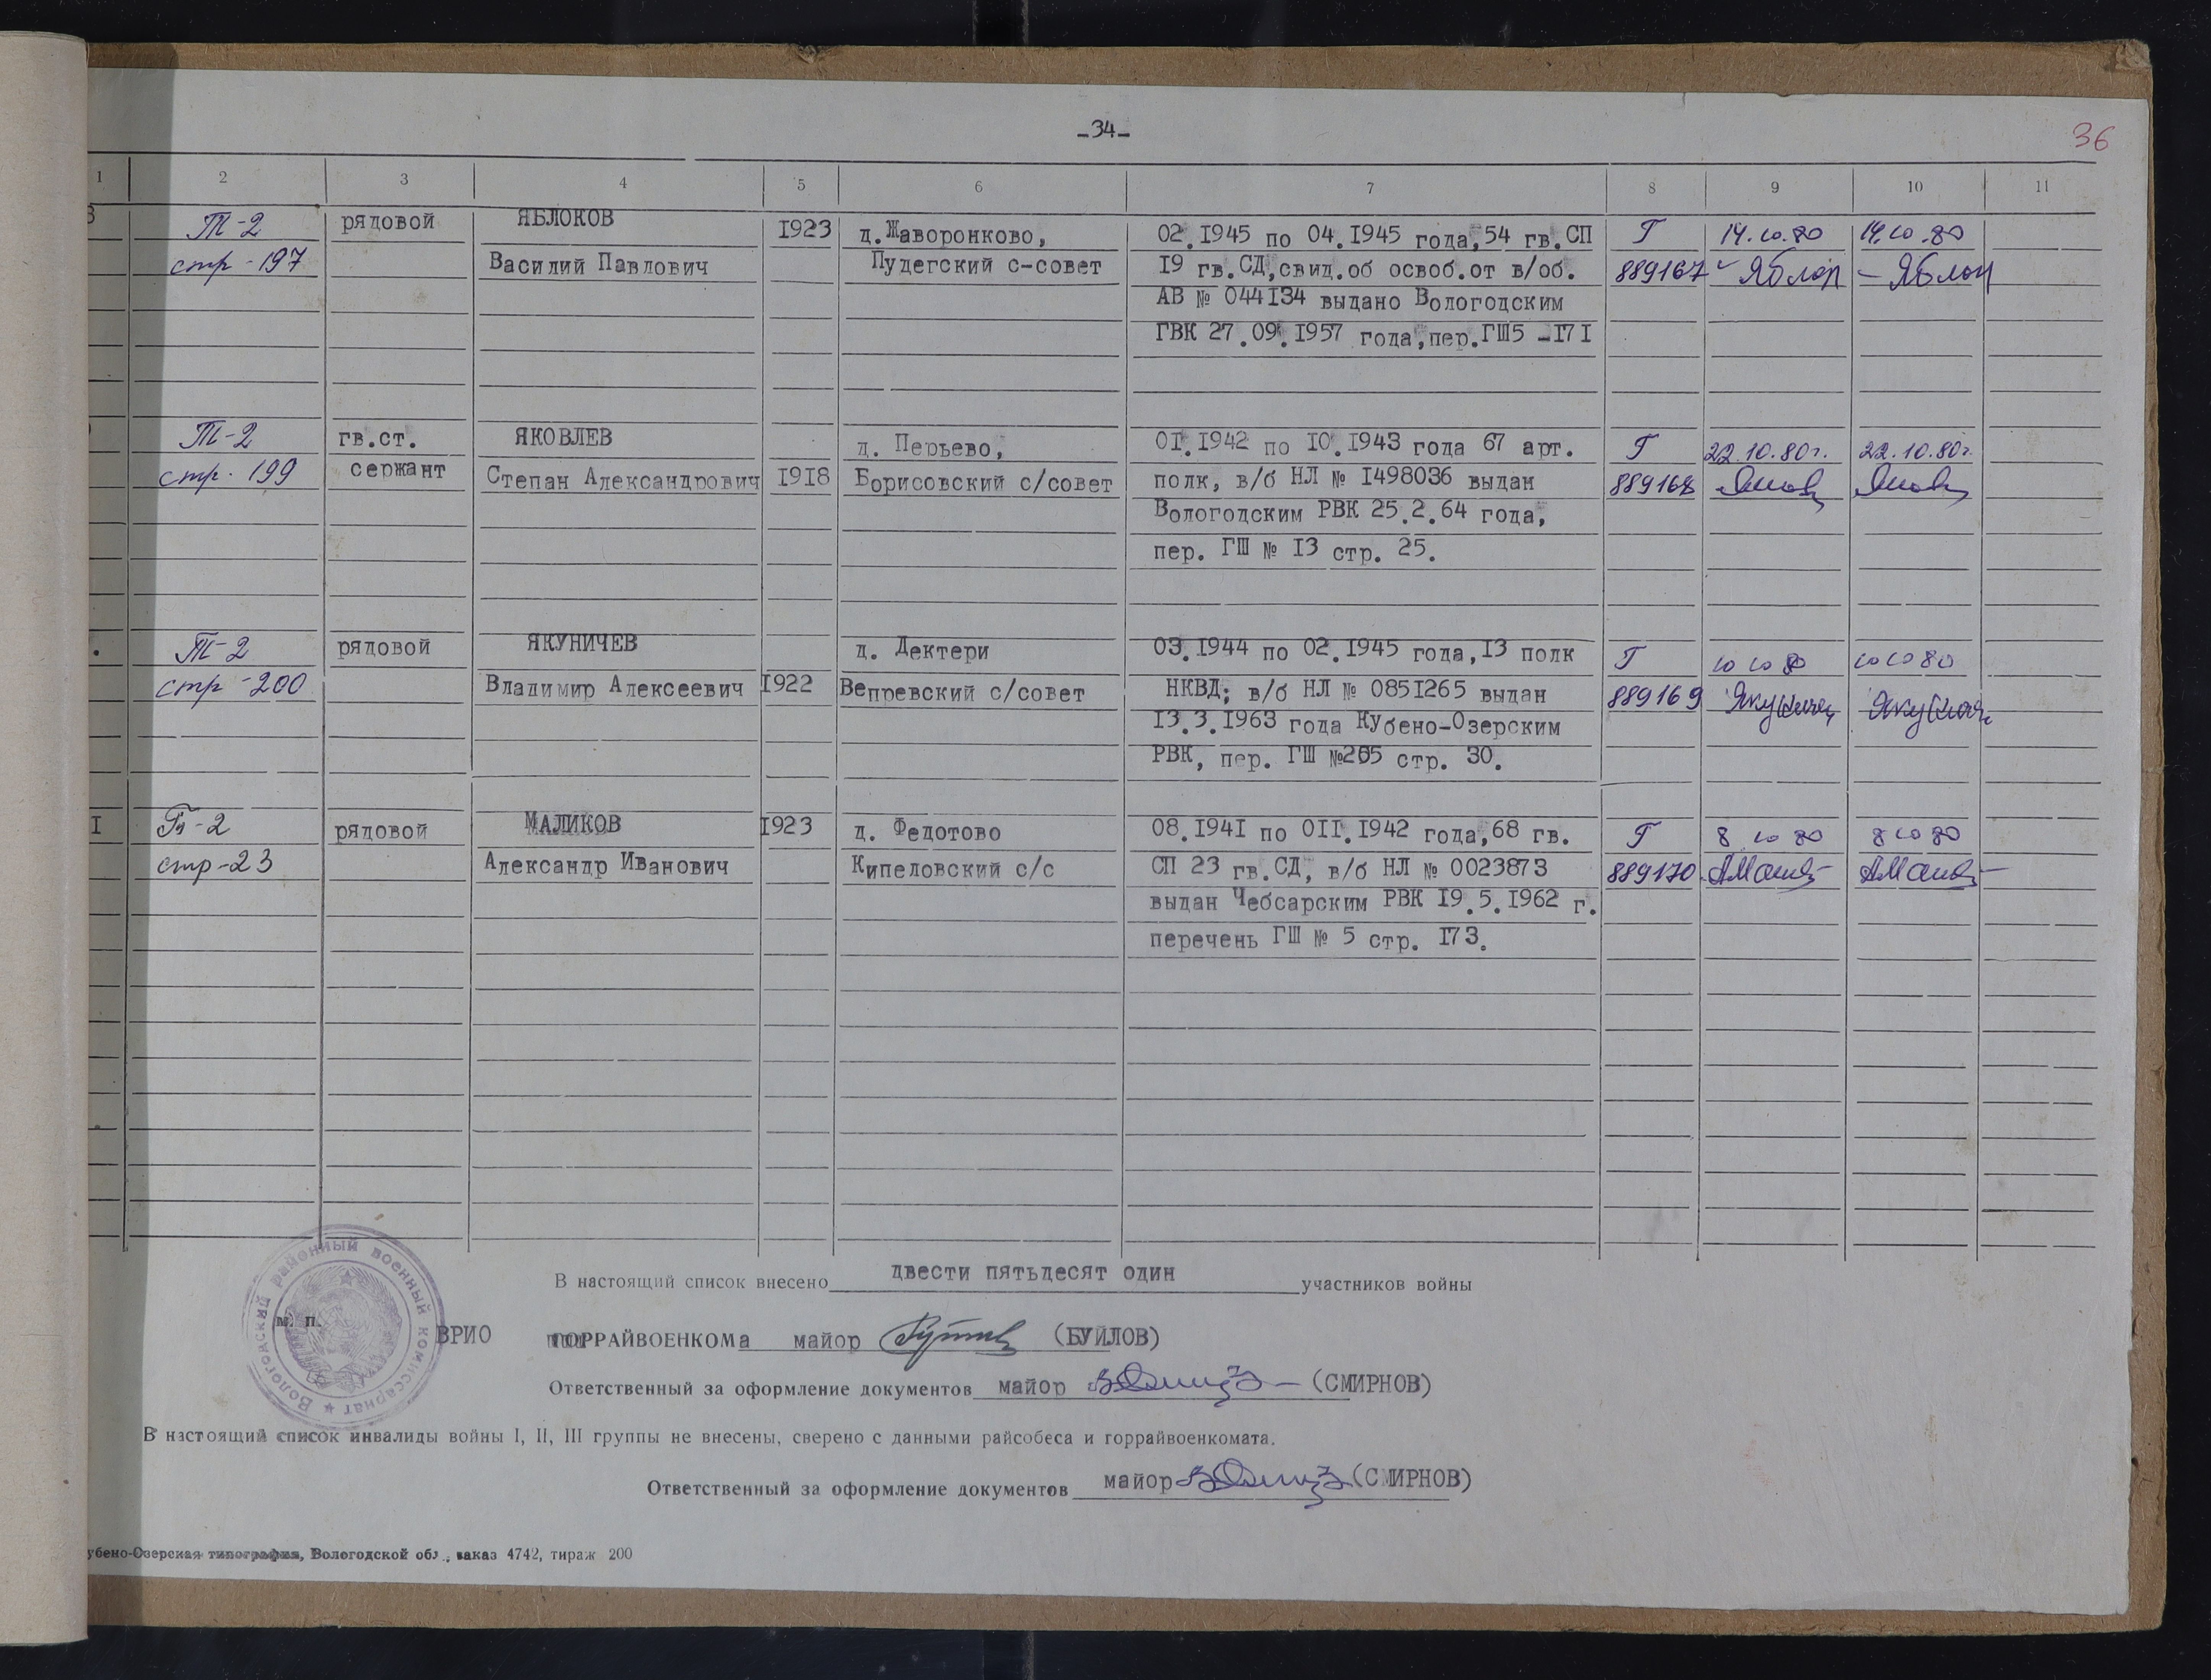 -34-
36
1 2 3 4 5 6 7 8 9 10 11
Т-2 рядовой ЯБЛОКОВ 1923 д.Жаворонково, 02.1945 по 04.1945 года,54 гв.СП Г 14.10.80 14.10.80
стр-197 Василий Павлович Пудегский с-совет 19 гв.СД,свид.об освоб.от в/об. 889167 Яблок Яблок
АВ № 044134 выдано Вологодским
ГВК 27.09.1957 года,пер.ГШ5-171
Т-2 гв.ст. ЯКОВЛЕВ д. Перьево, 01.1942 по 10.1943 года 67 арт. Г 22.10.80г. 22.10.80г.
стр. 199 сержант Степан Александрович 1918 Борисовский с/совет полк, в/б НЛ № 1498036 выдан 889168
Вологодским РВК 25.2.64 года,
пер. ГШ № 13 стр. 25.
Т-2 рядовой ЯКУНИЧЕВ д. Дектери 03.1944 по 02.1945 года,13 полк Г 10 10 80 10 10 80
стр-200 Владимир Алексеевич 1922 Вепревский с/совет НКВД; в/б НЛ № 0851265 выдан 889169 Якуничев Якуничев
13.3.1963 года Кубено-Озерским
РВК, пер. ГШ №265 стр. 30.
I -2 рядовой МАЛИКОВ 1923 д. Федотово 08.1941 по 011.1942 года,68 гв. Г 8 10 80 8 10 80
стр-23 Александр Иванович Кипеловский с/с СП 23 гв.СД, в/б НЛ № 0023873 889170
выдан Чебсарским РВК 19.5.1962 г.
перечень ГШ № 5 стр. 173.
В настоящий список внесено двести пятьдесят один участников войны
Вологодский районный военный комиссариат
м. п.
ВРИО ГОРРАЙВОЕНКОМа майор (БУЙЛОВ)
Ответственный за оформление документов майор (СМИРНОВ)
В настоящий список инвалиды войны I, II, III группы не внесены, сверено с данными райсобеса и горрайвоенкомата.
Ответственный за оформление документов майор (СМИРНОВ)
убено-Озерская типография, Вологодской обл., заказ 4742, тираж 200